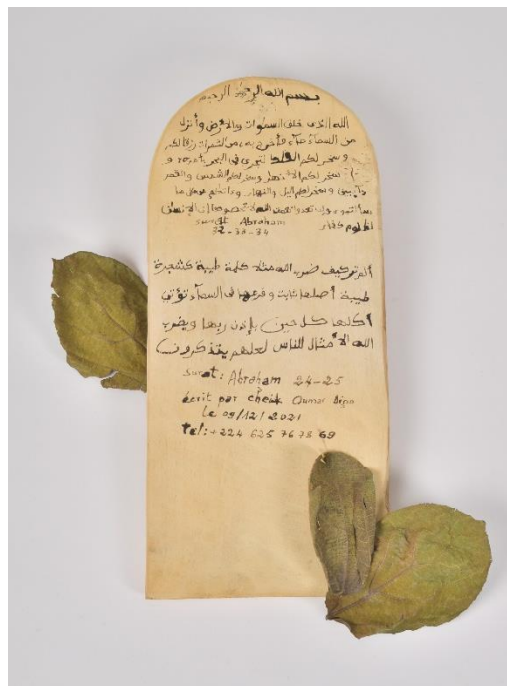 بسم الله الرحمن الرحيم
الله الذي خلق السموات والارض وأنزل
من السمآء مآء فأخرج به من الثمرات رزقا لكم
وسخر لكم الفلك لتجري في البحر بأمره و
سخر لكم الانهار وسخر لكم الشمس والقمر
دآئبين وسخر لكم اليل والنهار وءاتكم من كل ما
سألتموه وإن تعدوا نعمت الله لا تحصوها إن الإنسان
لظلوم كفار surat Abraham
32-33-34
ألم تر كيف ضرب الله مثلا كلمة طيبة كشجرة
طيبة أصلها ثابت وفرعها في السمآء تؤتي
أكلها كل حين بإذن ربها ويضرب
الله الأمثال للناس لعلهم يتذكرون
surat: Abraham 24-25
écrit par cheik Oumar
le 09/12/2021
tel: +224 625 76 78 69